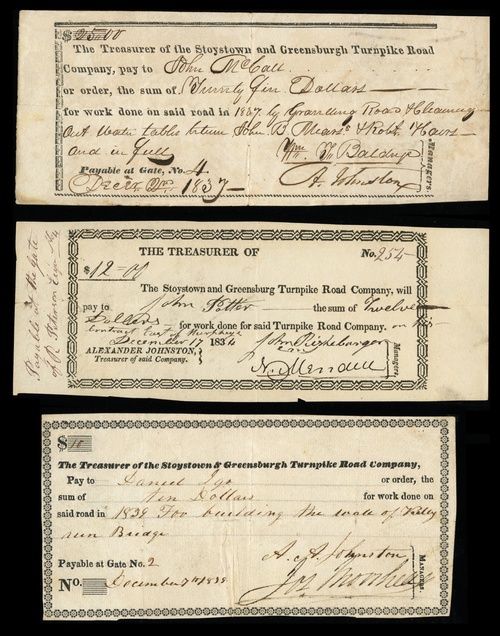 $25.00
The Treasurer of the Stoystown and Greensburgh Turnpike Road
Company, pay to John McCall
or order, the sum of Twenty five Dollars
for work done on said road in 1837 by Road &
out water tables between John B & Robt
and in full
Payable at Gate, No. 4
1837
Wm
A. Johnston
Managers.
Payable at the Gate
of
THE TREASURER OF
No. 254
$12-00
The Stoystown and Greensburgh Turnpike Road Company, will
pay to John Potter the sum of Twelve
Dollars for work done for said Turnpike Road Company. on his
contract East of
December 17 1834
ALEXANDER JOHNSTON,
Treasurer of said Company.
John
Managers.
$10
The Treasurer of the Stoystown & Greensburgh Turnpike Road Company,
Pay to Daniel or order, the
sum of Ten Dollars for work done on
said road in 1838 For building the wall of
run Bridge
Payable at Gate No. 2
No. December 7th 1838
A. Johnston
MANAGERS.